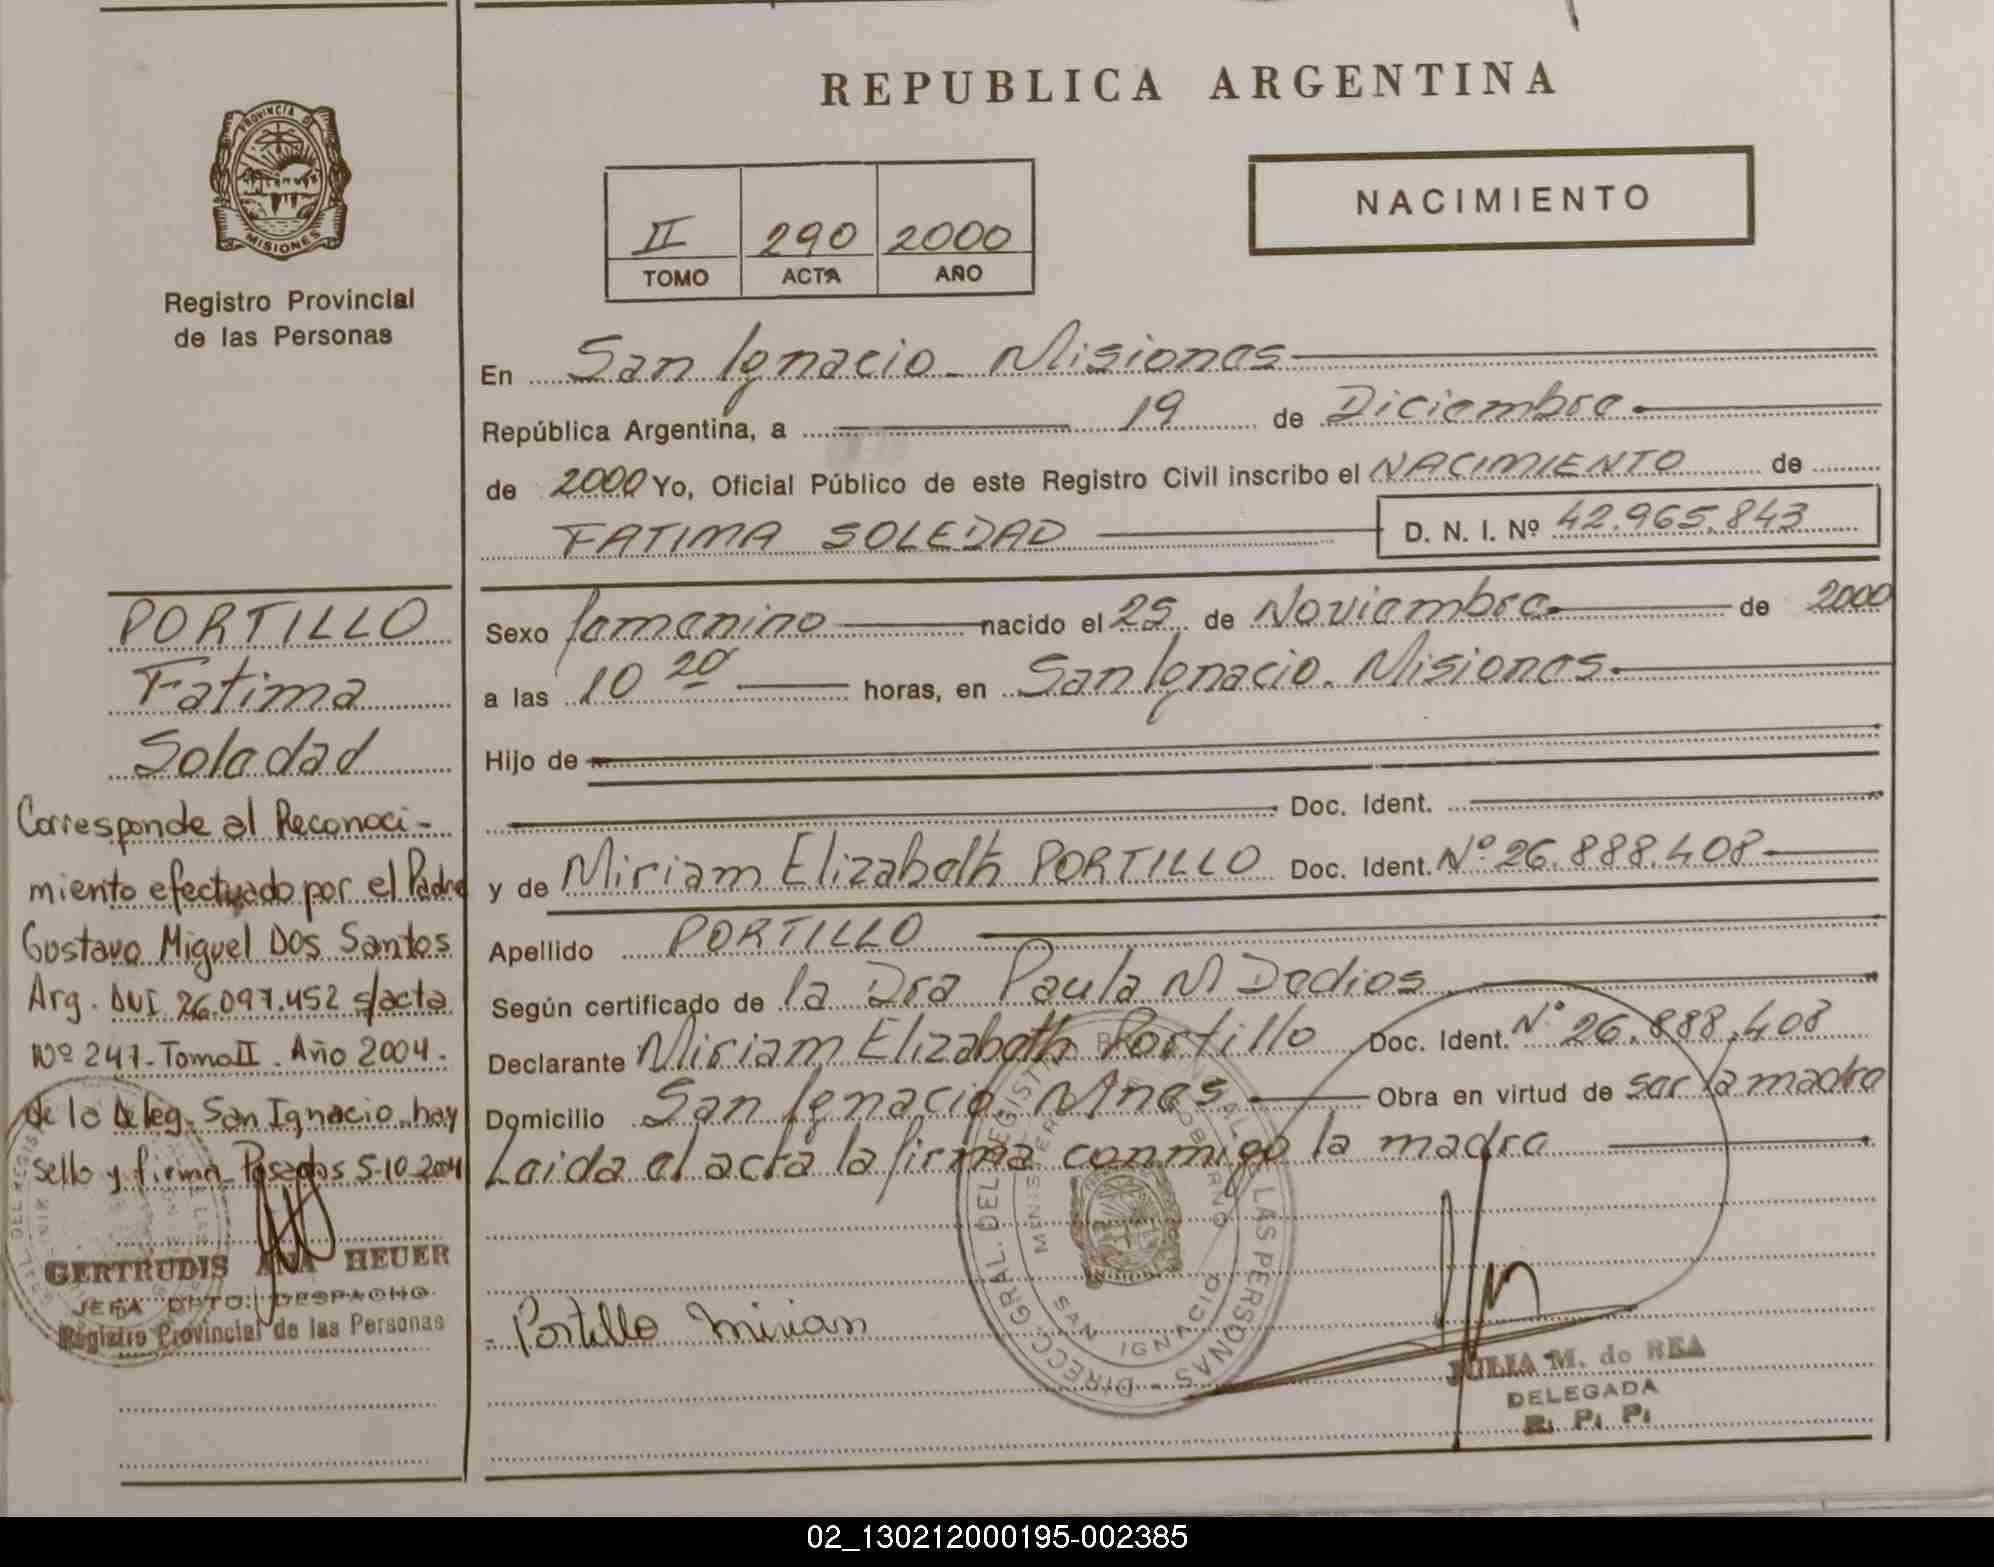 REPUBLICA ARGENTINA
PROVINCIA DE
MISIONES
Registro Provincial
de las Personas
NACIMIENTO
II 290 2000
TOMO ACTA AÑO
En San Ignacio - Misiones
República Argentina, a 19 de Diciembre
de 2000 Yo, Oficial Público de este Registro Civil inscribo el NACIMIENTO de
FATIMA SOLEDAD D. N. I. Nº 42.965.843
Sexo femenino nacido el 25 de Noviembre de 2000
a las 10 20 horas, en San Ignacio. Misiones
Hijo de
Doc. Ident.
y de Miriam Elizabeth PORTILLO Doc. Ident. Nº 26.888.408
Apellido PORTILLO
Según certificado de la Dra Paula M Dedios
Declarante Miriam Elizabeth Portillo Doc. Ident. Nº 26.888.408
Domicilio San Ignacio. Mnes Obra en virtud de ser la madre
Leida el acta la firma conmigo la madre
Portillo Mirian
DIRECC. GRAL. DEL REGISTRO PROVINCIAL DE LAS PERSONAS
SAN IGNACIO
JULIA M. de REA
DELEGADA
R. P. P.
PORTILLO
Fatima
Soledad
Corresponde al Reconoci-
miento efectuado por el Padre
Gustavo Miguel Dos Santos
Arg. DNI 26.097.452 s/acta
Nº 247-Tomo II. Año 2004.
de la Deleg. San Ignacio hay
sello y firma Posadas 5-10-2004
GERTRUDIS ANA HEUER
JEFA DPTO. DESPACHO
Registro Provincial de las Personas
02_130212000195-002385